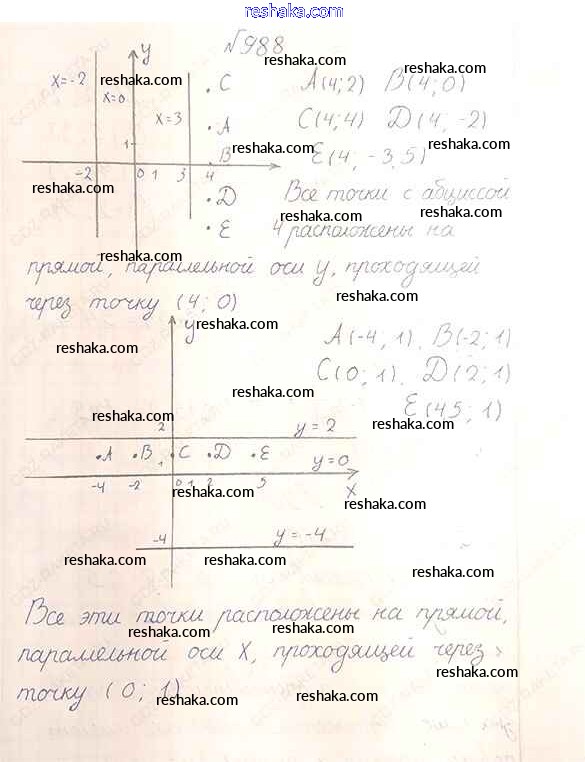 reshaka.com
№988
y
x=-2
reshaka.com
C
A(4;2) B(4;0)
reshaka.com
reshaka.com
x=0
x=3
A
C(4;4) D(4; -2)
reshaka.com
1
B
reshaka.com
E(4; -3,5)
-2 0 1 3 4
reshaka.com
reshaka.com
D
Все точки с абциссой
reshaka.com
reshaka.com
E
4 расположены на
reshaka.com
прямой, параллельной оси y, проходящей
через точку (4; 0)
reshaka.com
y
reshaka.com
A(-4; 1), B(-2; 1)
reshaka.com
C(0; 1), D(2; 1)
reshaka.com
E(4,5; 1)
reshaka.com
reshaka.com
2
y=2
A B C D E
1
y=0
-4 -2 0 1 2 5
reshaka.com
x
reshaka.com
-4
y=-4
reshaka.com
reshaka.com
reshaka.com
Все эти точки расположены на прямой,
reshaka.com
reshaka.com
параллельной оси X, проходящей через
reshaka.com
точку (0; 1)
reshaka.com
reshaka.com